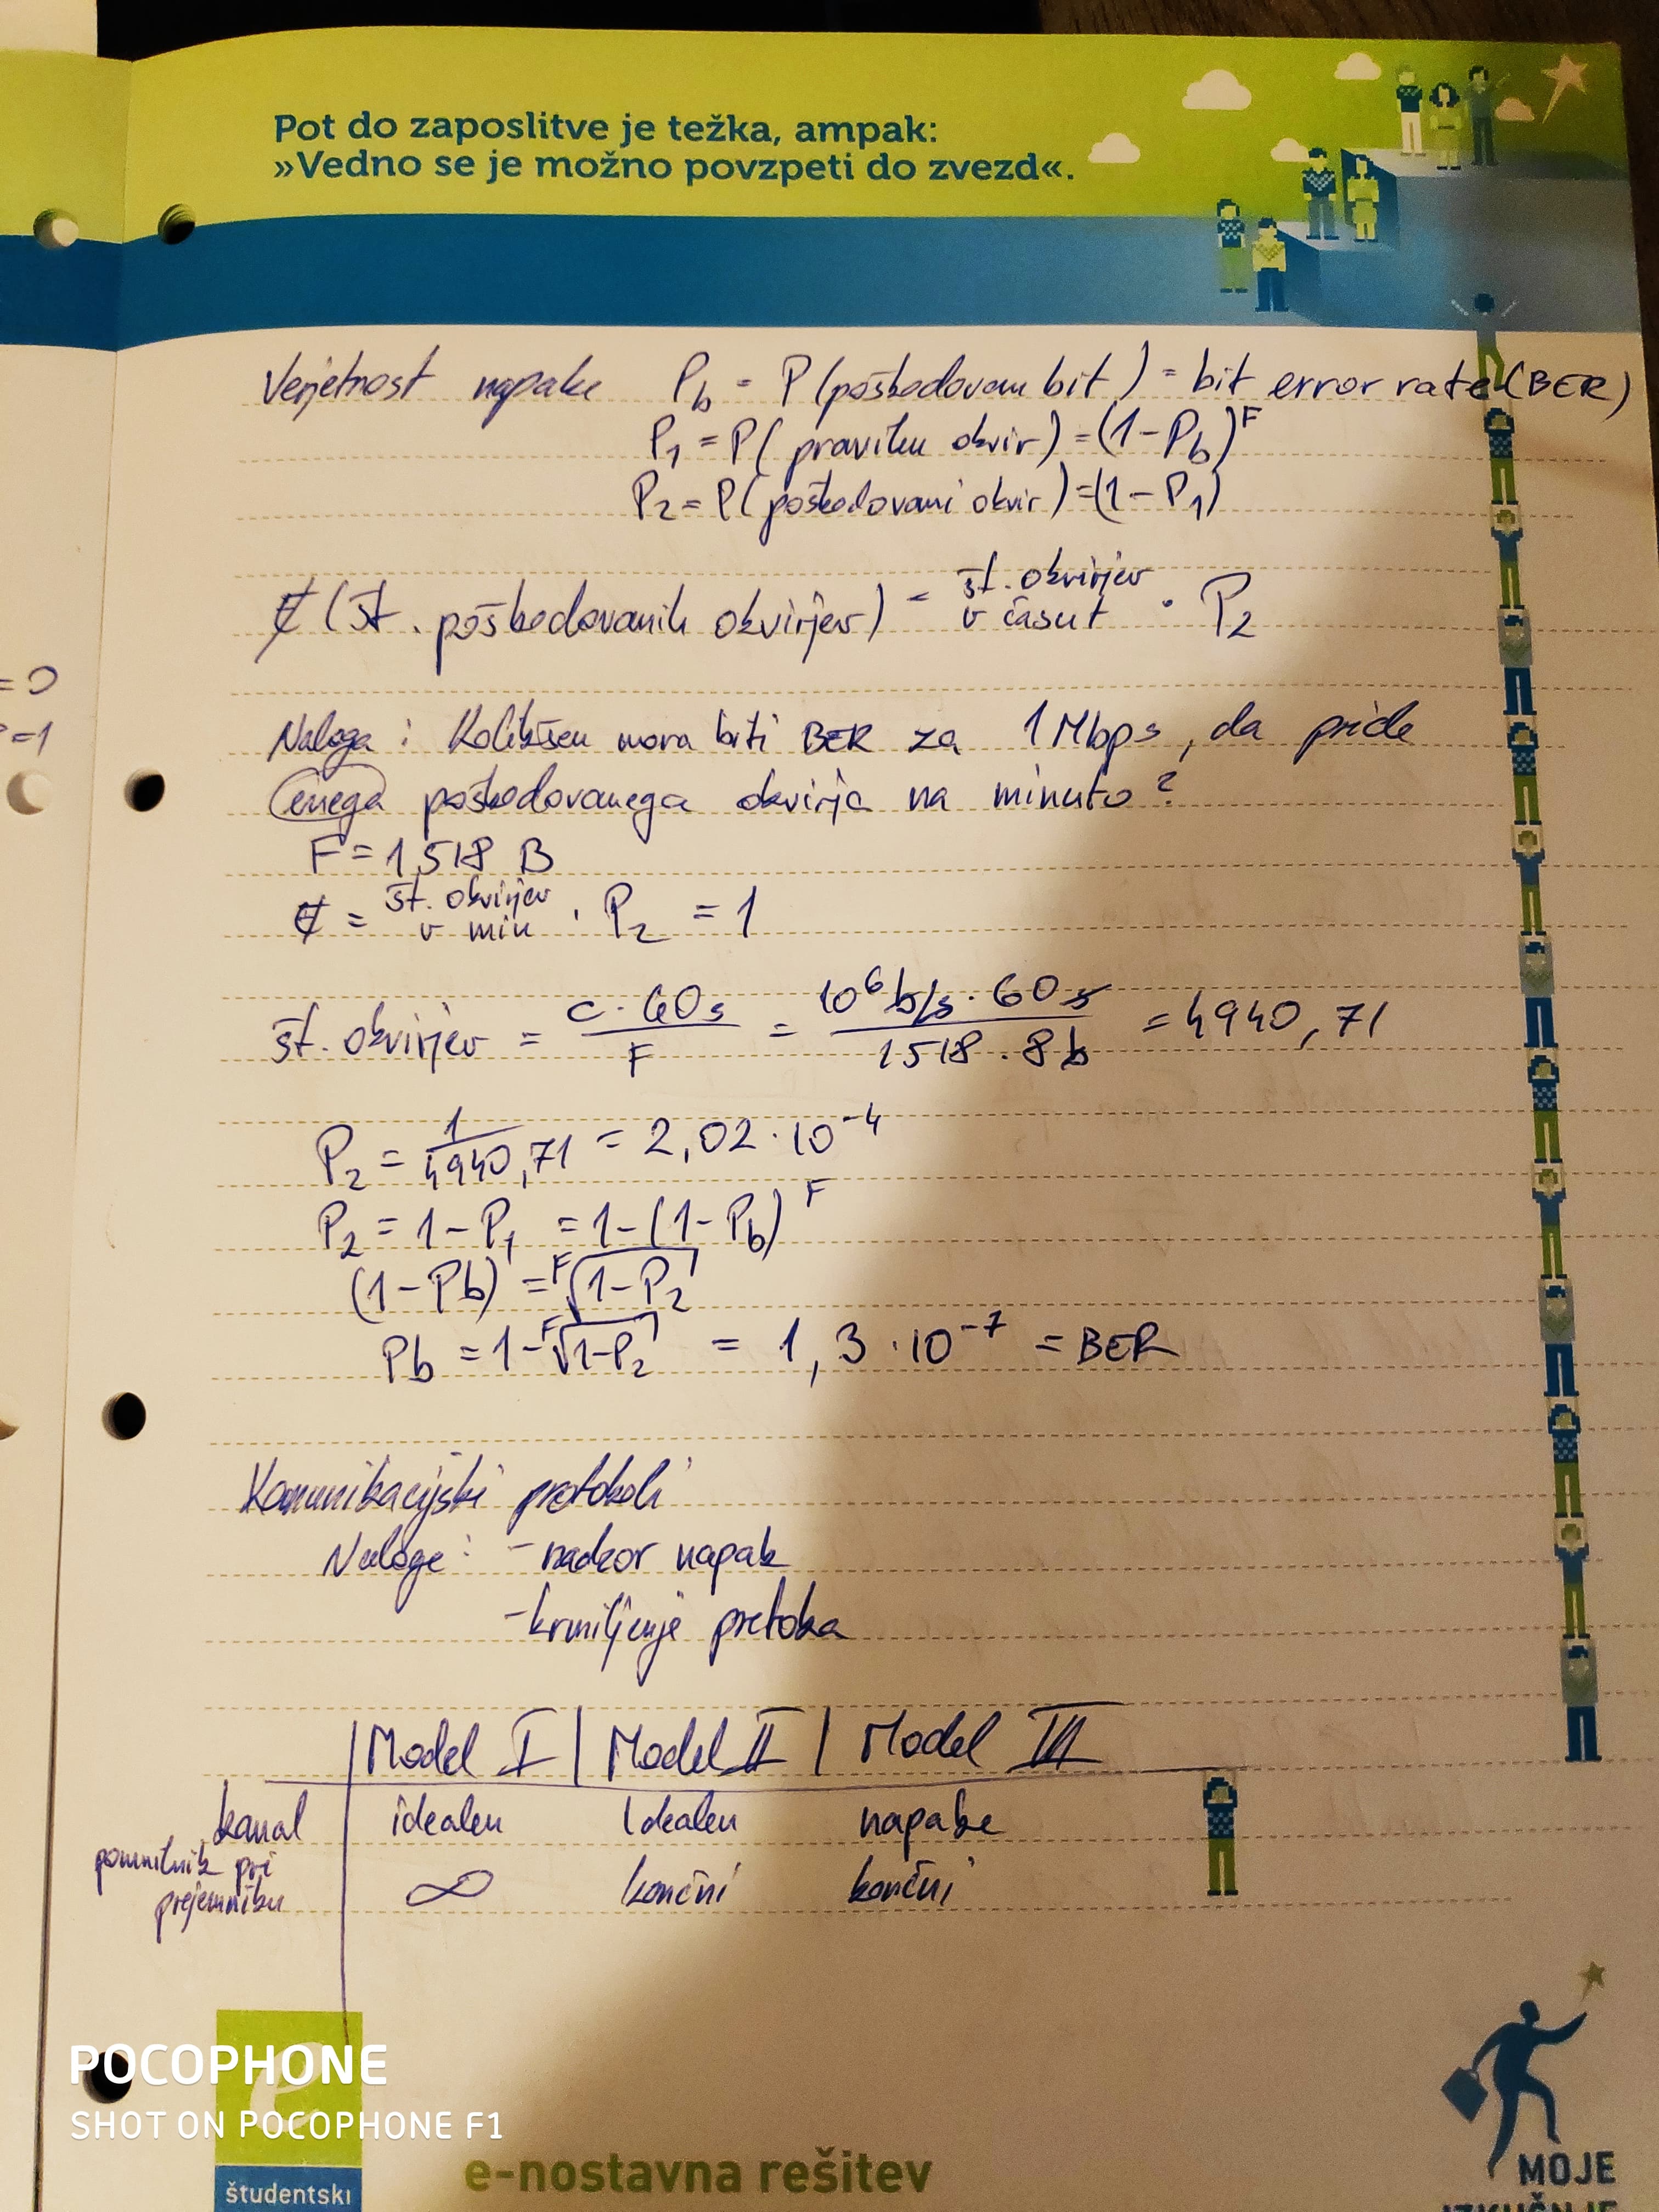 Pot do zaposlitve je težka, ampak:
»Vedno se je možno povzpeti do zvezd«.
Verjetnost napake P_b = P(poškodovan bit) = bit error rate (BER)
P_1 = P(pravilni okvir) = (1-P_b)^F
P_2 = P(poškodovani okvir) = (1-P_1)
E(št. poškodovanih okvirjev) = št. okvirjev v času t · P_2
=0
=1
Naloga: Kolikšen mora biti BER za 1 Mbps, da pride
enega poškodovanega okvirja na minuto?
F = 1518 B
E = št. okvirjev v min · P_2 = 1
št. okvirjev = c·60s / F = 10^6 b/s · 60s / 1518 · 8b = 4940,71
P_2 = 1 / 4940,71 = 2,02·10^-4
P_2 = 1-P_1 = 1-(1-P_b)^F
(1-Pb) = F√1-P_2
Pb = 1-F√1-P_2 = 1,3·10^-7 = BER
Komunikacijski protokoli
Naloge: - nadzor napak
- krmiljenje pretoka
Model I | Model II | Model III
kanal idealen idealen napake
pomnilnik pri prejemniku ∞ končni končni
POCOPHONE
SHOT ON POCOPHONE F1
e
študentski
e-nostavna rešitev
MOJE
IZKUŠNJE